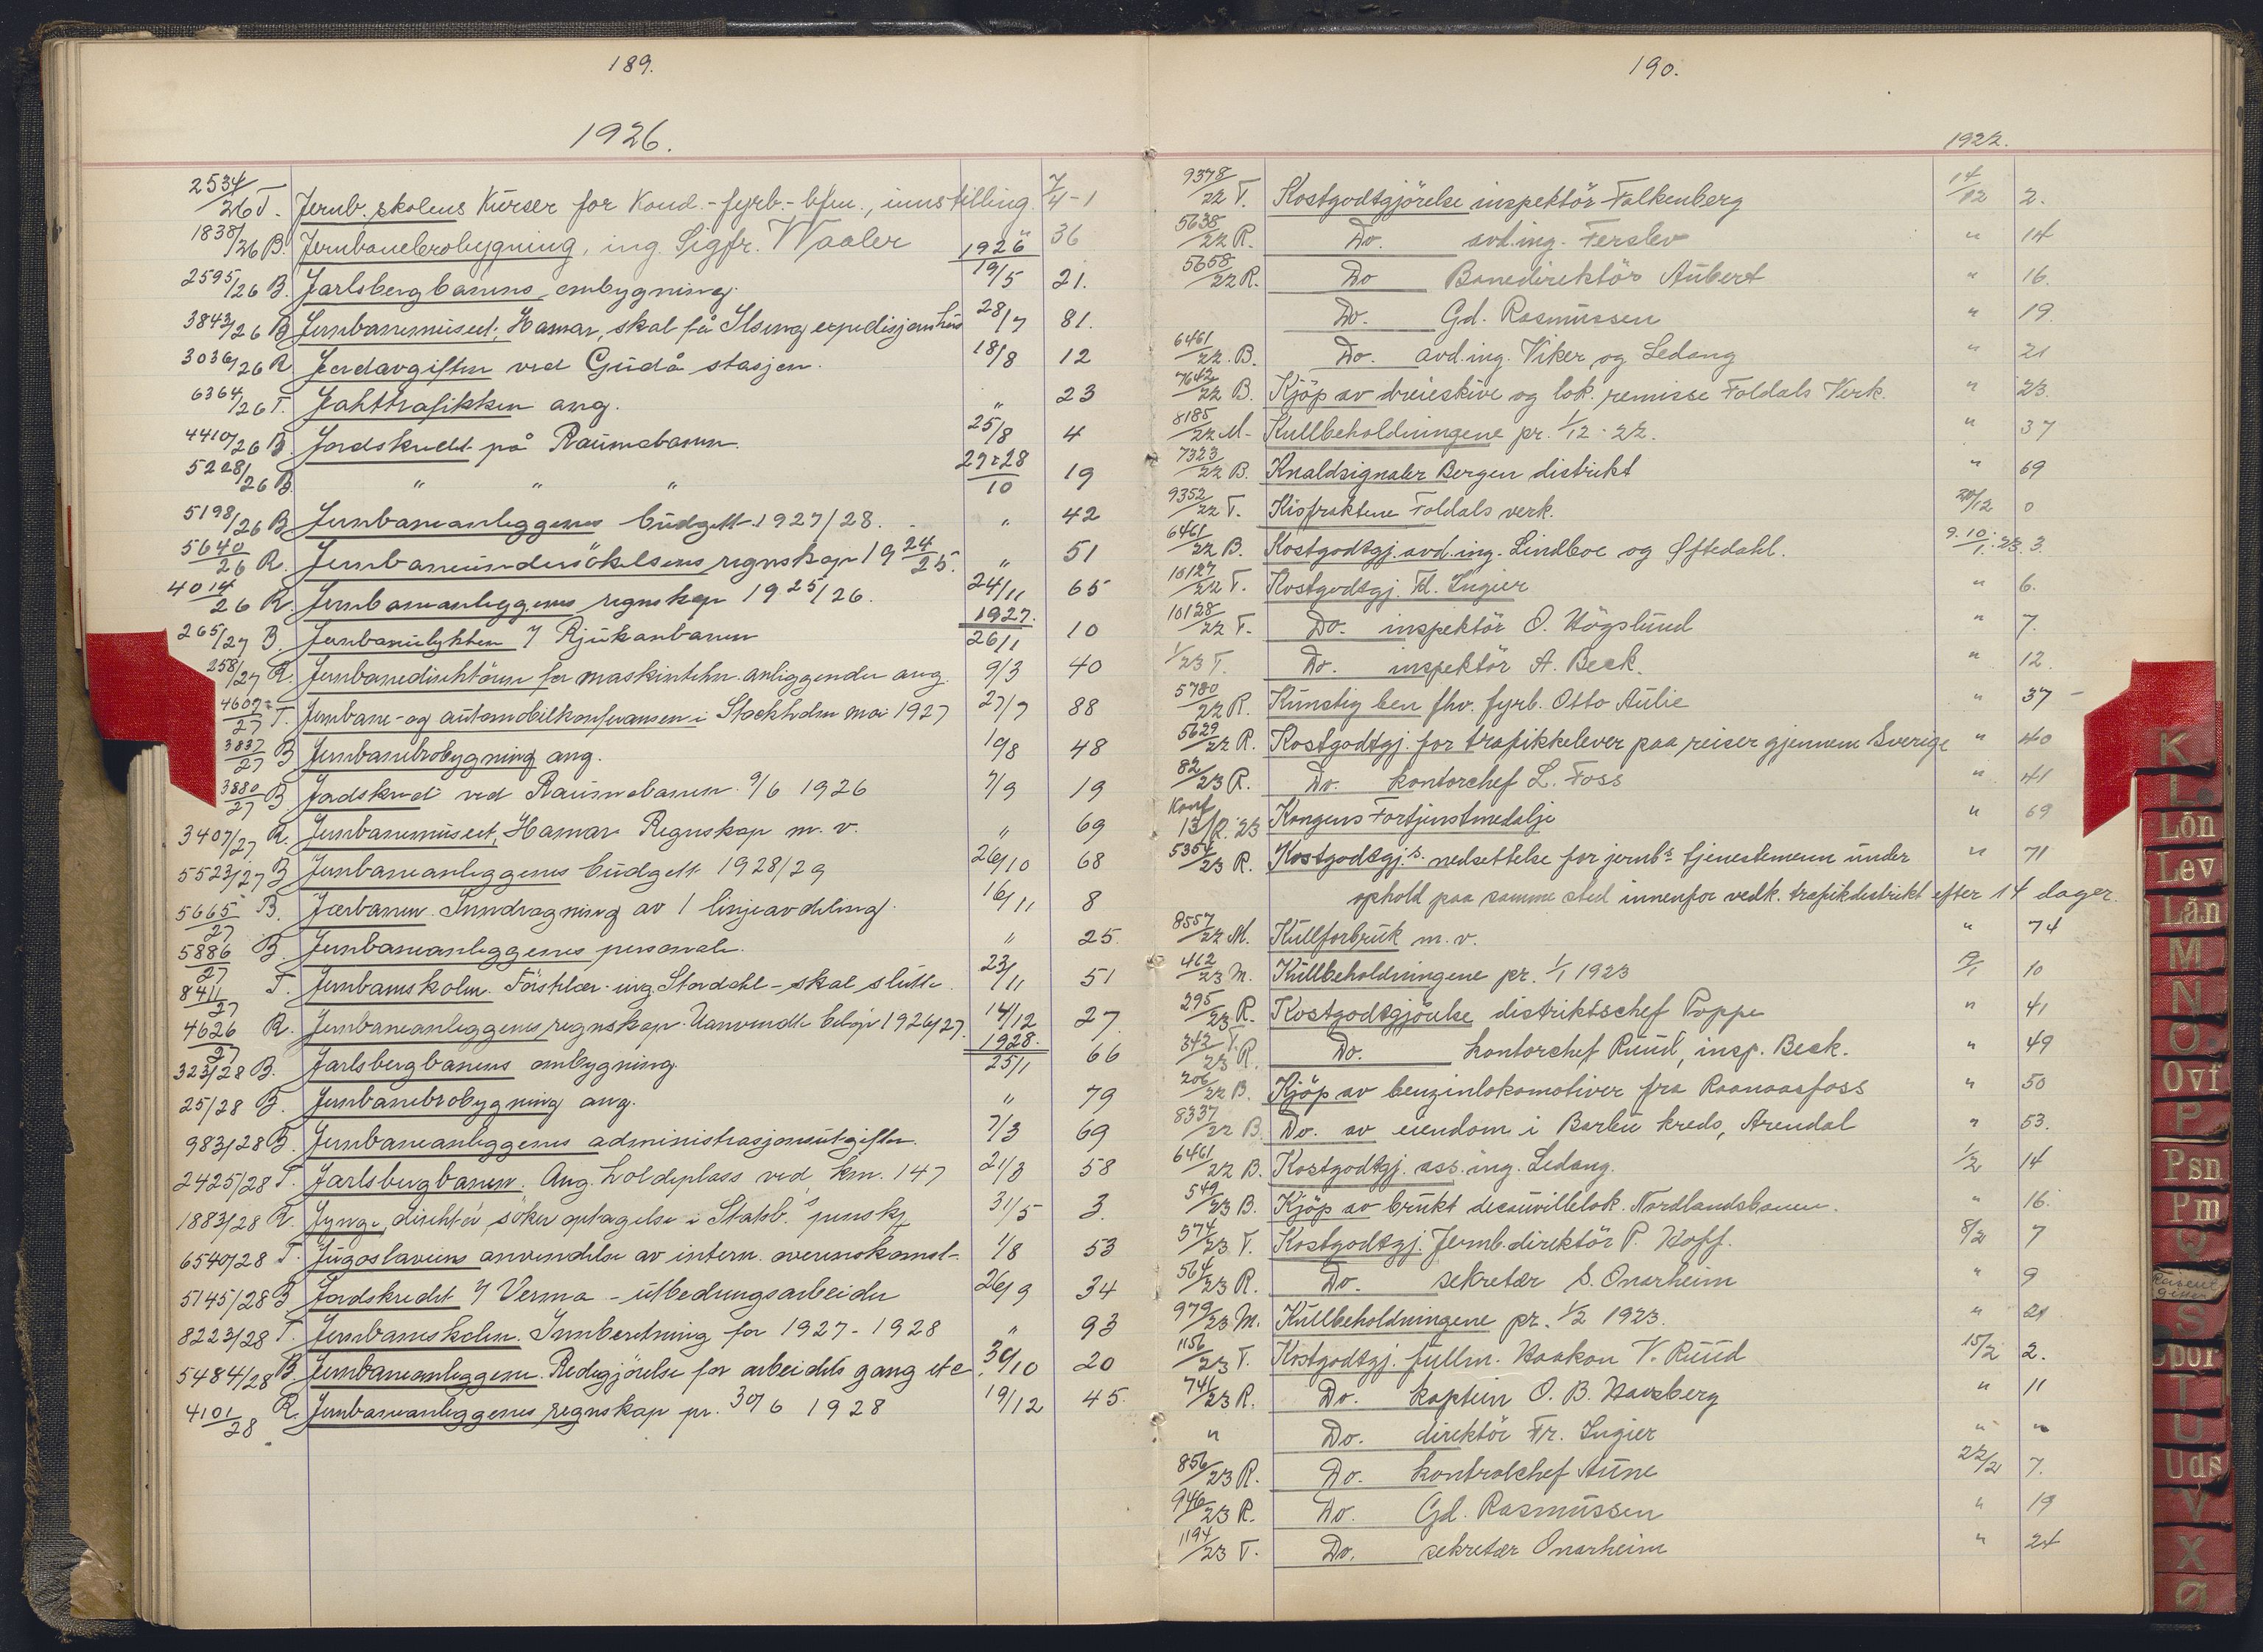 189.
1926.
2534/26 T. Jernb. skolens Kurser for Kond.-fyrb.-bfm., innstilling. 7/4 - 1
1838/26 B. Jernbanebrobygning, ing. Sigfr. Waaler " 36
1926
2595/26 B. Jarlsbergbanens ombygning. 19/5 21.
3843/26 B Jernbanemuseet, Hamar, skal få Ilseng expedisjonshus 28/7 81.
3036/26 R Jordavgiften ved Gudå stasjon. 18/8 12
6364/26 T. Jakttrafikken ang. " 23
4410/26 B. Jordskredet på Raumabanen. 25/8 4
5228/26 B. " " " 27 & 28/10 19
5198/26 B Jernbaneanleggenes budgett 1927/28. " 42
5640/26 R. Jernbaneundersökelsens regnskap 1924/25. " 51
4014/26 R. Jernbaneanleggenes regnskap 1925/26. 24/11 65
1927.
265/27 B. Jernbaneulykken / Rjukanbanen 26/1 10
258/27 R. Jernbanedirektören for maskintekn. anliggender ang. 9/3 40
4607/27 T. Jernbane- og automobilkonferansen i Stockholm mai 1927 27/7 88
3837/27 B Jernbanebrobygning ang. 1/98 48
3880/27 B Jordskred ved Raumabanen 9/6 1926 7/9 19
3407/27 R. Jernbanemuseet, Hamar Regnskap m. v. " 69
5523/27 B Jernbaneanleggenes budgett 1928/29 26/10 68
5665/27 B. Jærbanen. Inndragning av 1 linjeavdeling. 16/11 8
5886/27 B. Jernbaneanleggenes personale. " 25.
8411/27 T. Jernbaneskolen. Förstelær. ing. Stordahl - skal slutte. 23/11 51
4626/27 R. Jernbaneanleggenes regnskap. Uanvendte belöp 1926/27. 14/12 27.
1928.
323/28 B. Jarlsbergbanens ombygning. 25/1 66
25/28 B. Jernbanebrobygning ang. " 79
983/28 B. Jernbaneanleggenes administrasjonsutgifter. 7/3 69
2425/28 T. Jarlsbergbanen. Ang. holdeplass ved km. 147 21/3 58
1883/28 R. Jynge, direktör, söker optagelse i Statsb.s pensk. 31/5 3.
6540/28 T. Jugoslaviens anvendelse av intern. overenskomst- 1/8 53
5145/28 B Jordskredet / Verma - utbedringsarbeider 26/9 34
8223/28 T. Jernbaneskolen. Innberetning for 1927-1928 " 93
5484/28 B. Jernbaneanleggene. Redegjörelse for arbeidets gang etc. 30/10 20
4101/28 R. Jernbaneanleggenes regnskap pr. 30/6 1928 19/12 45.
190.
1922.
9378/22 T. Kostgodtgjörelse inspektör Falkenberg 14/12 2.
5638/22 R. Do. avd.ing. Ferslev " 14
5658/22 R. Do Banedirektör Aubert " 16.
Do. Gd. Rasmussen " 19
6461/22 B. Do. avd.ing. Viker og Ledang " 21
7642/22 B. Kjöp av dreieskive og lok. remisse Foldals Verk. " 23.
8185/22 M. Kullbeholdningene pr. 1/12 - 22. " 37
7323/22 B. Knaldsignaler Bergen distrikt " 69
9352/22 T. Kisfraktene Foldals verk. 20/12 0
6461/22 B. Kostgodtgj. avd.ing. Lindboe og Øftedahl. 9.10/1.23. 3.
10127/22 T. Kostgodtgj. Fr. Ingier " 6.
10128/22 T. Do. inspektör O. Högslund " 7.
1/23 T. Do. inspektör A. Beck. " 12.
5780/22 R. Kunstig ben fhv. fyrb. Otto Aulie " 37 -
5629/22 R. Kostgodtgj. for trafikkelever paa reiser gjennem Sverige " 40
82/23 R. Do. kontorchef L. Foss " 41
Konf 13/R. 23 Kongens Fortjenstmedalje " 69
5354/23 R. Kostgodtgj.s. nedsettelse for jernb.s tjenestemenn under " 71
ophold paa samme sted innenfor vedk. trafikdistrikt efter 14 dager.
8557/22 M. Kullforbruk m. v. " 74
462/23 M. Kullbeholdningene pr. 1/1 1923 17/1 10
295/23 R. Kostgodtgjörelse distriktschef Poppe " 41
343/23 T. R. Do. kontorchef Ruud, insp. Beck. " 49
206/22 B. Kjöp av benzinlokomotiver fra Raanaasfoss " 50
8337/22 B. Do. av eiendom i Barbu kreds, Arendal " 53.
6461/22 B. Kostgodtgj. ass. ing. Ledang. 1/2 14
549/23 B. Kjöp av brukt decauvillelok. Nordlandsbanen. " 16.
574/23 T. Kostgodtgj. Jernb.direktör P. Hoff. 8/2 7
564/23 R. Do. sekretær S. Onarheim " 9
979/23 M. Kullbeholdningene pr. 1/2 1923. " 21
1156/23 T. Kostgodtgj. fullm. Haakon V. Ruud 15/2 2.
741/23 R. Do. kaptein O. B. Havsberg " 11
" Do. direktör Fr. Ingier " "
856/23 R. Do. kontrolchef Aune 22/2 7.
946/23 R. Do. Gd. Rasmussen " 19
1194/23 T. Do. sekretær Onarheim " 24
K
L
Lön
Lev
Lån
M
N
O
Ovf
P
Psn
Pm
Q
S
Spor
T
U
Uds
V
X
Ø